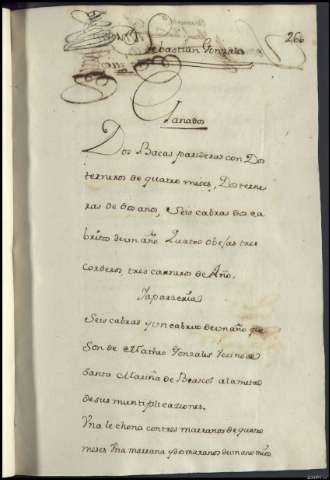 266
Sebastian Gonzalez
Ganados
Dos Bacas parideras con Dos
terneros de quatro meses, Dos terne
ras de dos años, Seis cabras dos ca
britos de un año Quatro obejas tres
Corderos, tres carneros de Año.
Taparzeria
Seis cabras y un cabrito de un año que
Son de Matheo Gonzales Vecino de
Santa Mariña de
de sus multiplicaziones.
Vna lechona con tres marranos de quatro
meses Vna marrana y dos marranos de un año